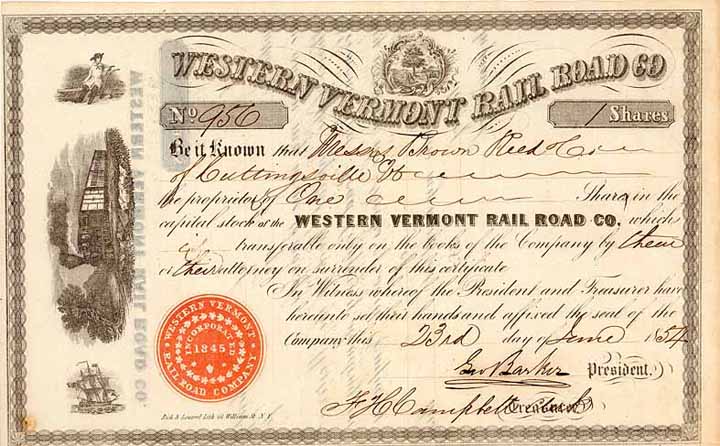 WESTERN VERMONT RAIL ROAD CO
No 956
1 Shares
Be it Known that Messrs Brown Reed & Co
of Cuttingsville Vt
the proprietor of One Share in the
capital stock of the WESTERN VERMONT RAIL ROAD CO. which
is transferable only on the books of the Company by their
or their attorney on surrender of this certificate
In Witness whereof the President and Treasurer have
hereunto set their hands and affixed the seal of the
Company this 23rd day of June 1854
Geo Barker President.
F H Campbell Treasurer
WESTERN VERMONT RAIL ROAD CO.
WESTERN VERMONT
RAILROAD COMPANY
INCORPORATED
1845
Lith 46 William St. N.Y.